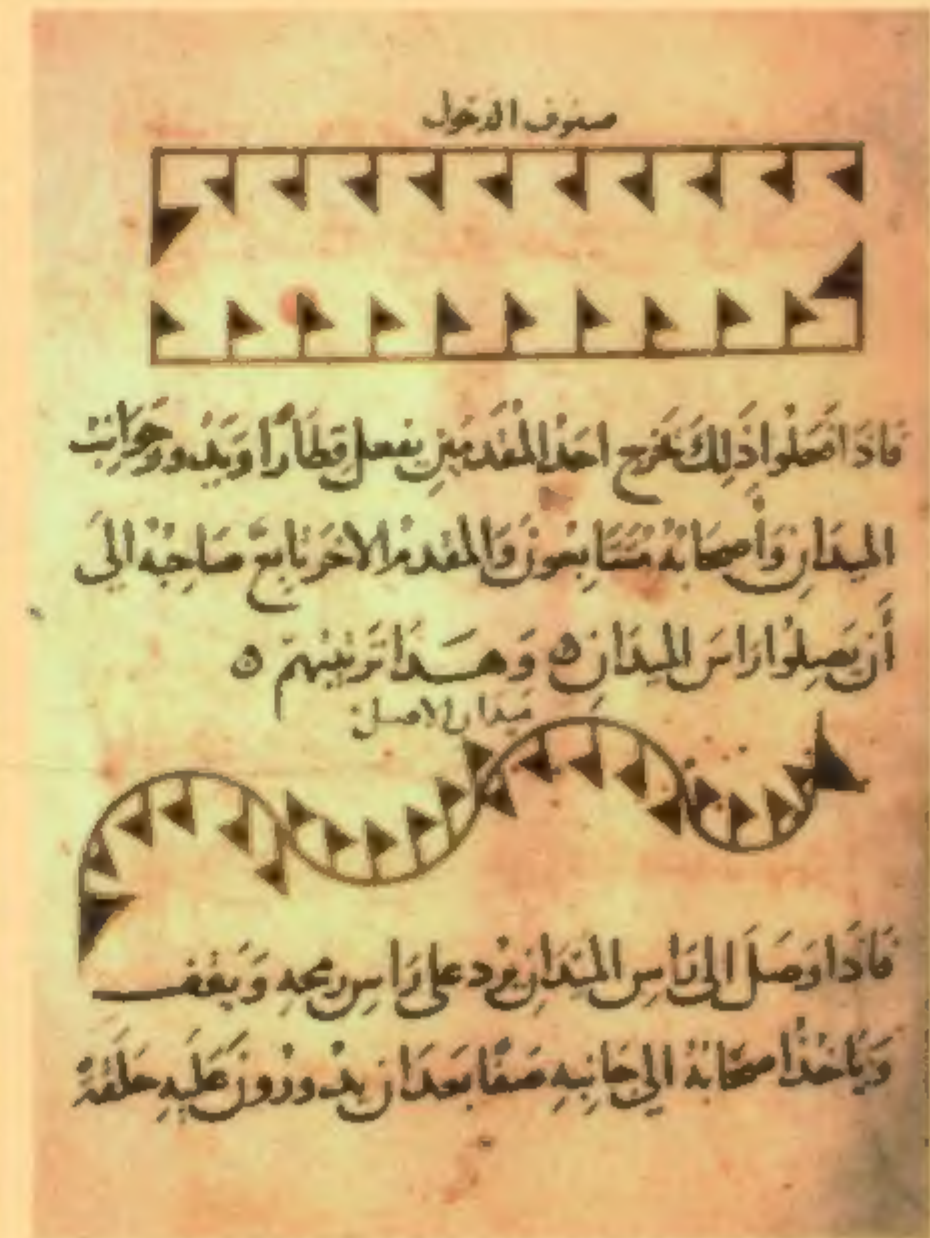 صفوف الدخول
فاذا افعلوا ذلك يخرج احد المقدمين يفعل قطارا ويدور جوانب
الميدان واصحابه متتابعون والمقدم الاخر تابع صاحبه الي
أن يصلوا راس الميدان ٥ وهذا ترتيبهم ٥
ميدان الاصل
فاذا وصل الى راس الميدان يرد على راس رمحه ويقف
وياخذ اصحابه الي جانبه صفا بعد ان يدورون عليه حلقة